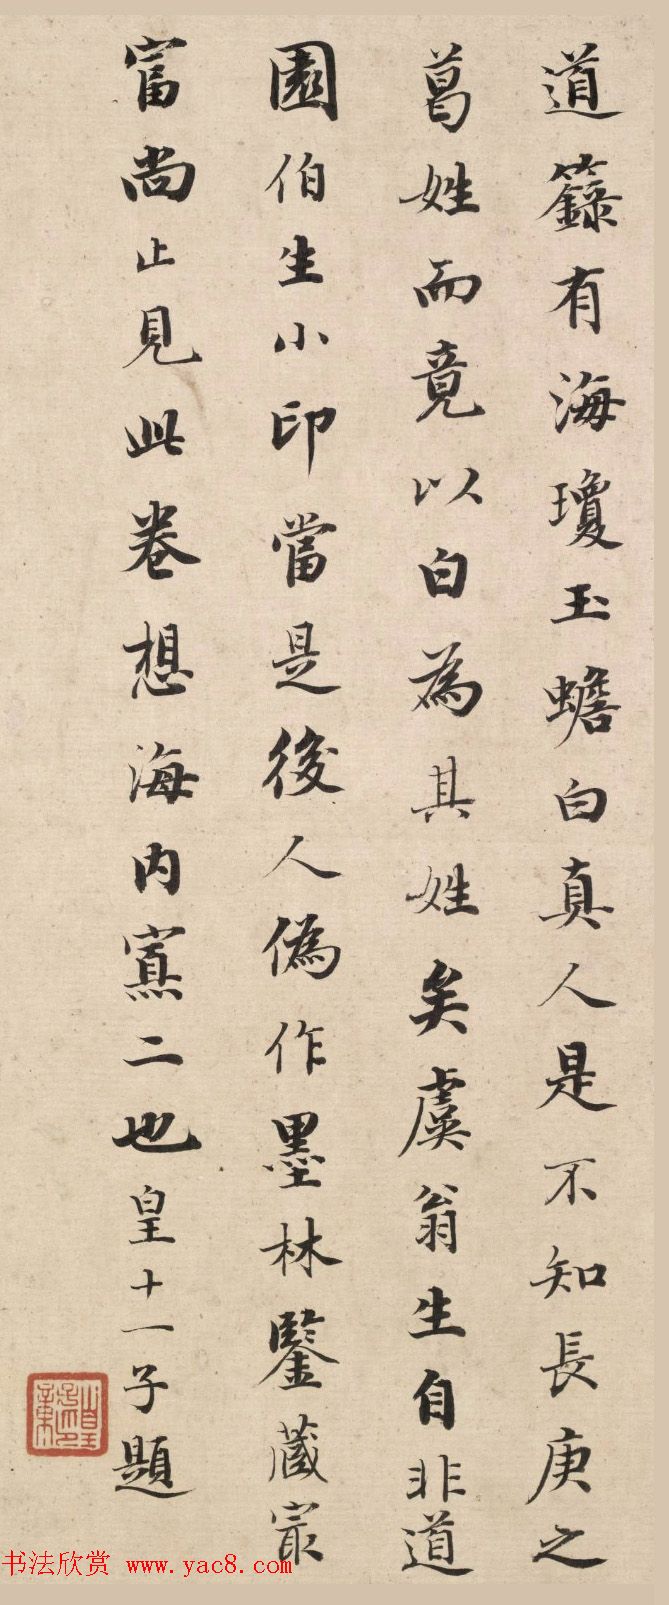 道籙有海瓊玉蟾白真人是不知長庚之
葛姓而竟以白為其姓矣虞翁生自非道
園伯生小印當是後人偽作墨林鑒藏㝡
富尚止見此卷想海内寡二也皇十一子題
书法欣赏 www.yac8.com